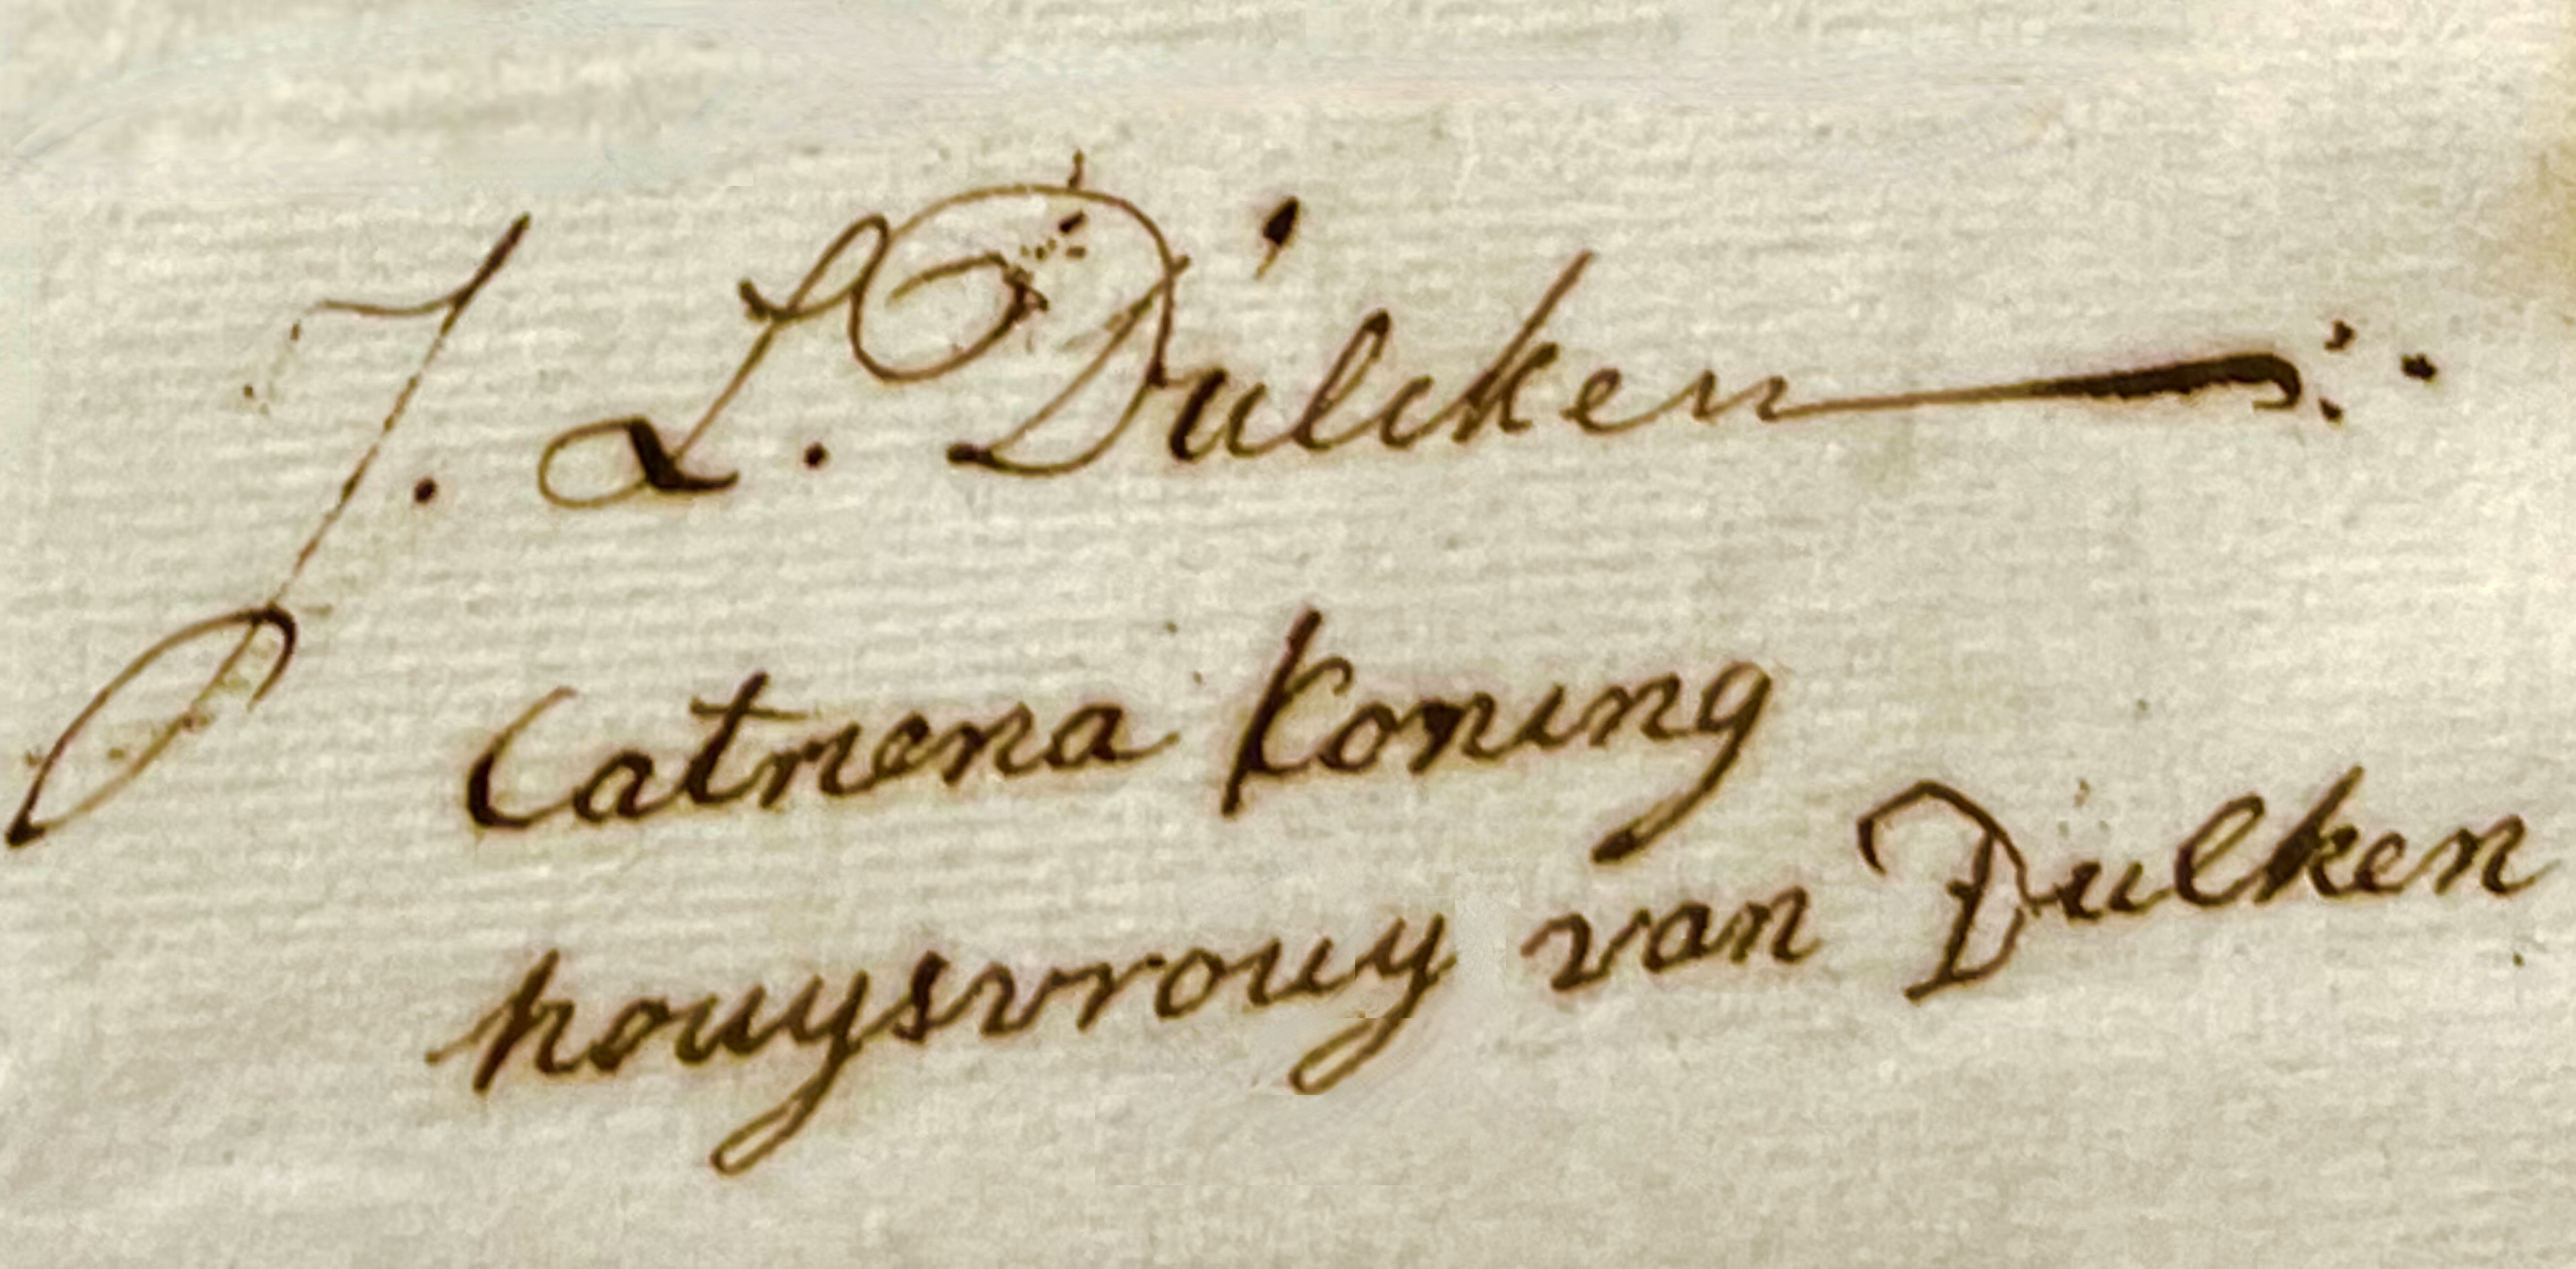 J. L. Dulcken
Catriena Koning
houysvrouy van Dulken